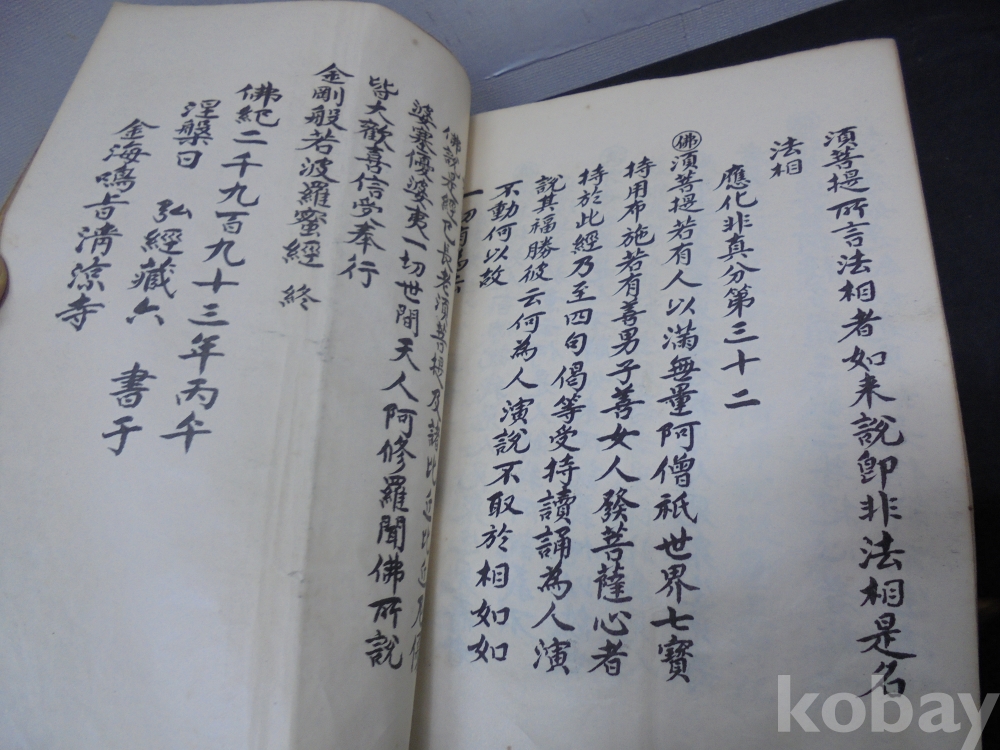 須菩提所言法相者如来說卽非法相是名
法相
應化非真分第三十二
佛須菩提若有人以滿無量阿僧祇世界七寶
持用布施若有善男子善女人發菩薩心者
持於此經乃至四句偈等受持讀誦為人演
說其福勝彼云何為人演說不取於相如如
不動何以故
一切有為
佛說是經已長老須菩提及諸比丘比丘尼優
婆塞優婆夷一切世間天人阿修羅聞佛所說
皆大歡喜信受奉行
金剛般若波羅蜜經 終
佛紀二千九百九十三年丙午
涅槃日 弘經藏六 書于
金海鳴旨淸凉寺
kobay